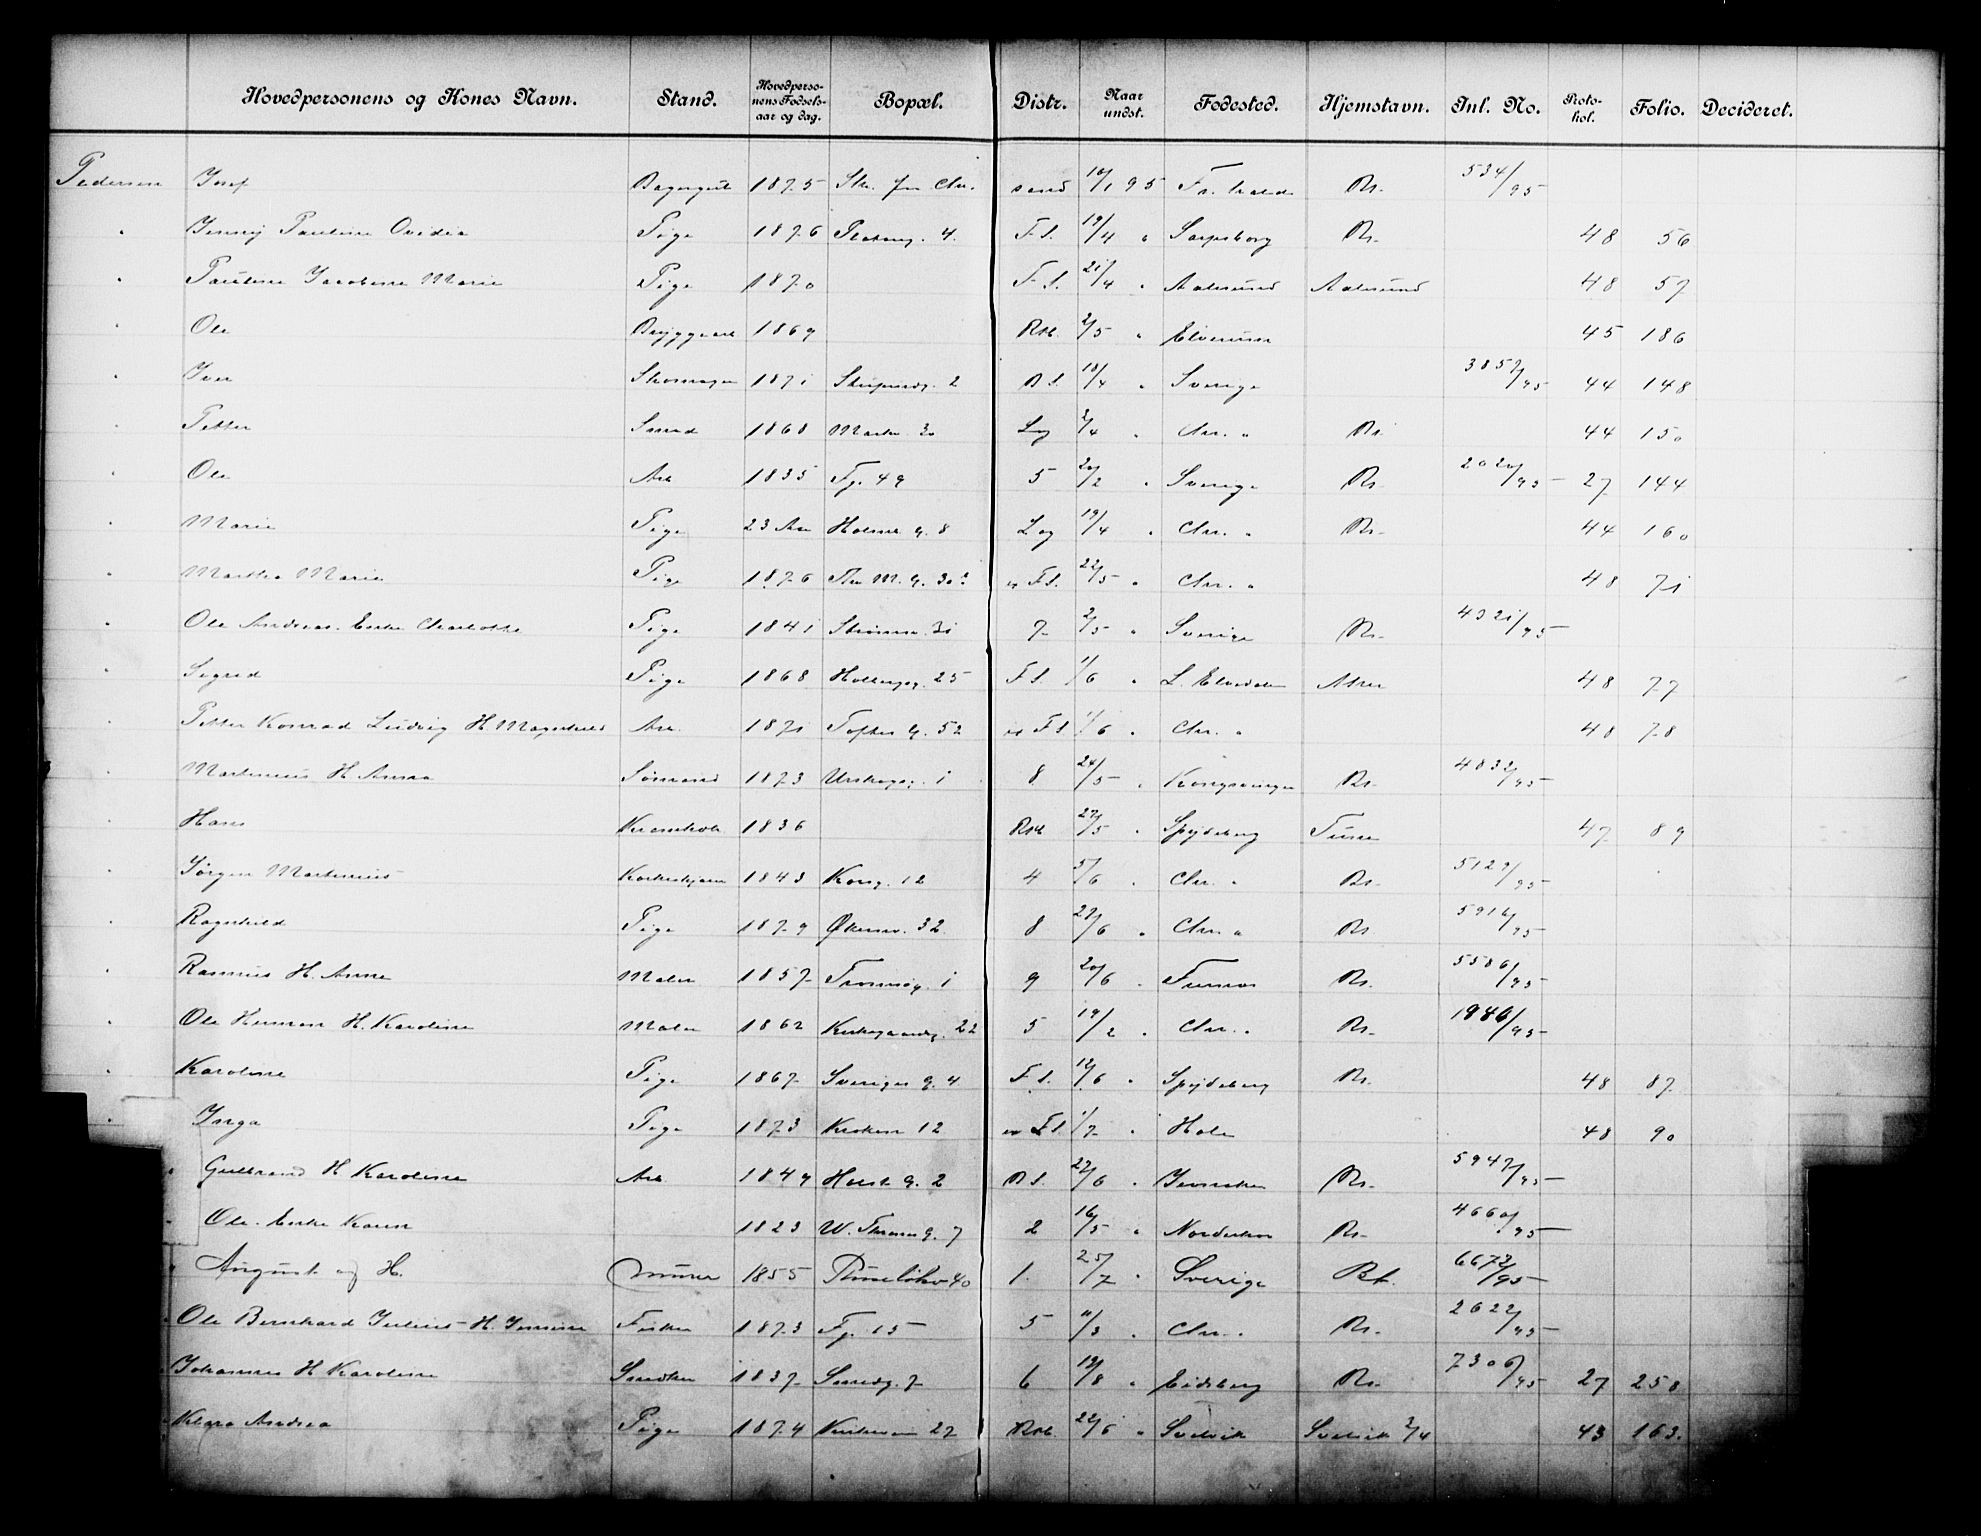 Hovedpersonens og Kones Navn. Stand. Hovedpersonens Fødselsaar og dag. Bopæl. Distr. Naar undst. Fødested. Hjemstavn. Inl. No. Protokol. Folio. Decideret.
Pedersen Josef 1875 10/1 95 Fr.hald Kr. 534/95
" Jenny Pauline Ovidia Pige 1876 4. F.S. 19/4 " Sarpsborg Kr. 48 56
" Pauline Jacobine Marie Pige 1870 F.S. 21/4 " Aalesund Aalesund 48 57
" Ole Bryggearb 1869 2/5 " Elverum 45 186
" Iver Skomager 1871 2 B.S. 18/4 " Sverige 3857/95 44 148
" Petter Smed 1868 Markv. 30 Lag 2/4 " Chr. " Kr. 44 150
" Ole Arb 1835 Fjg. 49 5 20/2 " Sverige Kr. 2020/95 27 144
" Marie Pige 23 Aar Holmb g. 8 Lag 19/4 " Chr. " Kr. 44 160
" Martha Marie Pige 1876 Thv M. g. 30 F.S. 22/5 " Chr. " 48 71
" Ole Andreas. Enke Charlotte Pige 1841 Strømsv. 31 7 2/5 " Sverige Kr. 4321/95
" Sigrid Pige 1868 Holbergsg. 25 F.S. 1/6 " L. Elvedalen Aker 48 77
" Petter Konrad Ludvig H. Magnhild Arb. 1871 Toftes g. 52 F.S 1/6 " Chr. " 48 78
" Martinius H. Anna Sømand 1873 Urskogsg. 1 8 24/5 " Kongsvinger Kr. 4832/95
" Hans 1836 27/5 " Spydeberg Tune 47 89
" Jørgen Martinius 1843 Kong. 12 4 5/6 " Chr. " Kr. 5129/95
" Ragnhild Pige 1879 Økernv. 32 8 27/6 " Chr. " Kr 5916/95
" Rasmus H. Anne Maler 1857 Tromsøg. 1 9 20/6 " Furnes Kr. 5586/95
" Ole Herman H. Karoline Maler 1862 Kirkegaardsg. 22 5 19/2 " Chr. " Kr. 1986/95
" Karoline Pige 1867 Sveriges g. 4 F.S. 12/6 " Spydeberg Kr. 48 87
" Inga Pige 1873 Kroken 12 F.S. 1/7 " Hole 48 90
" Gulbrand H Karoline Arb 1849 Holst g. 2 B.S. 27/6 " Jevnaker Kr. 5947/95
" Ole. Enke Karen 1823 W. Thranes g. 7 2 16/5 " Nordrehov Kr. 4660/95
" August og H. Murer 1855 Thuneløkv 40 1. 25/7 " Sverige Bt. 6672/95
" Ole Bernhard Julius H. Jensine Fisker 1873 Fjg. 15 5 11/3 " Chr. " Kr. 2622/95
" Johannes H Karoline Snedker 1837 Smedg. 7 6 19/8 " Eidsberg Kr. 7306/95 27 258
Klara Andrea Pige 1874 27 22/6 " Svelvik Svelvik 2/4 43 163.